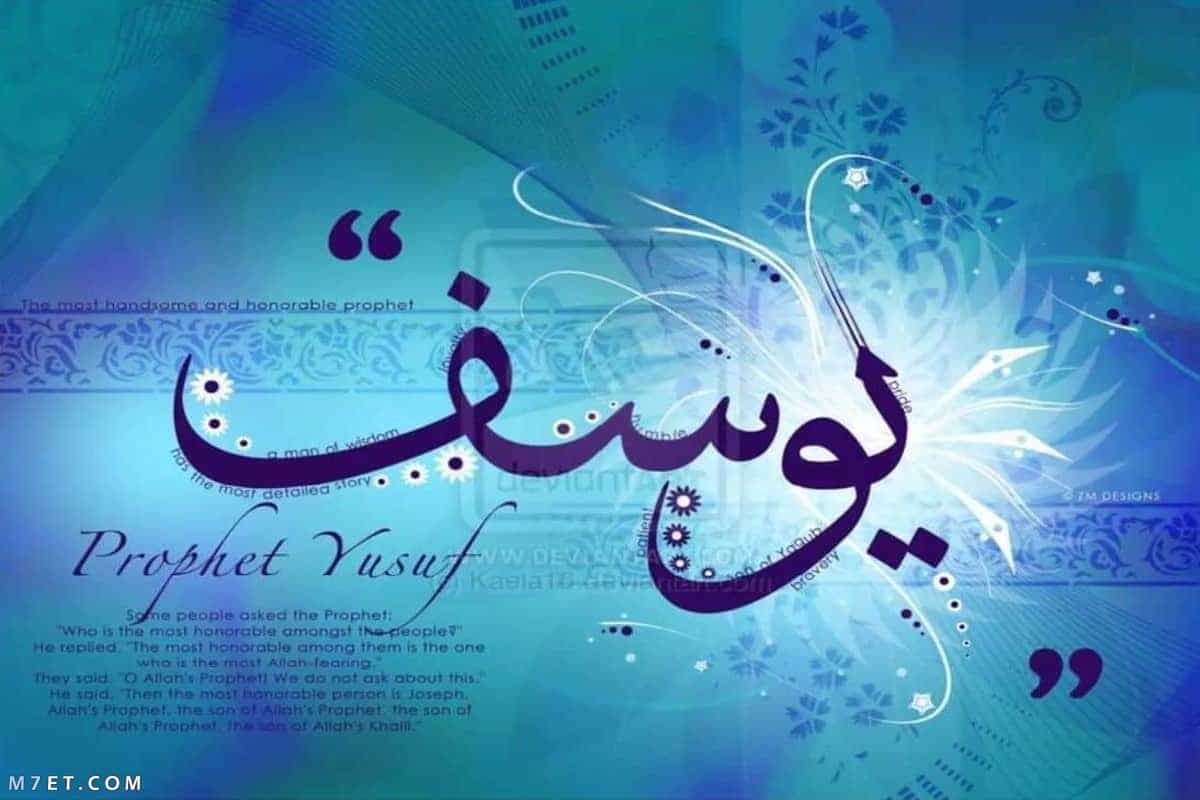 “
The most handsome and honorable prophet
يوسف
pride
humble
a man of wisdom
has the most detailed story
patient
son of Yaqub
brovery
deviantART
© ZM DESIGNS
WWW.DEVIANTART.COM
(c) Kaela16.deviantart.com
Prophet Yusuf
Some people asked the Prophet:
"Who is the most honorable amongst the people?"
He replied, "The most honorable among them is the one
who is the most Allah-fearing."
They said, "O Allah's Prophet! We do not ask about this."
He said, "Then the most honorable person is Joseph,
Allah's Prophet, the son of Allah's Prophet, the son of
Allah's Prophet, the son of Allah's Khalil."
”
M7ET.COM